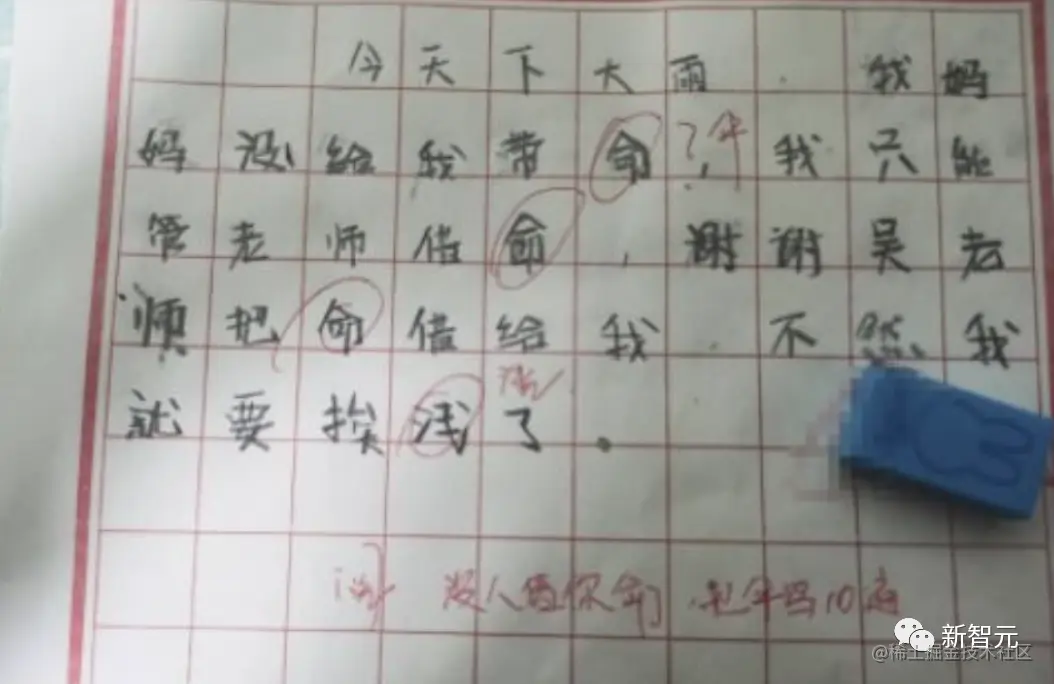 今天下大雨.我妈
妈没给我带命,我只能
?伞
管老师借命,谢谢吴老
师把命借给我.不然我
就要挨浅了。
没人要你命,把伞写10遍
新智元
@稀土掘金技术社区